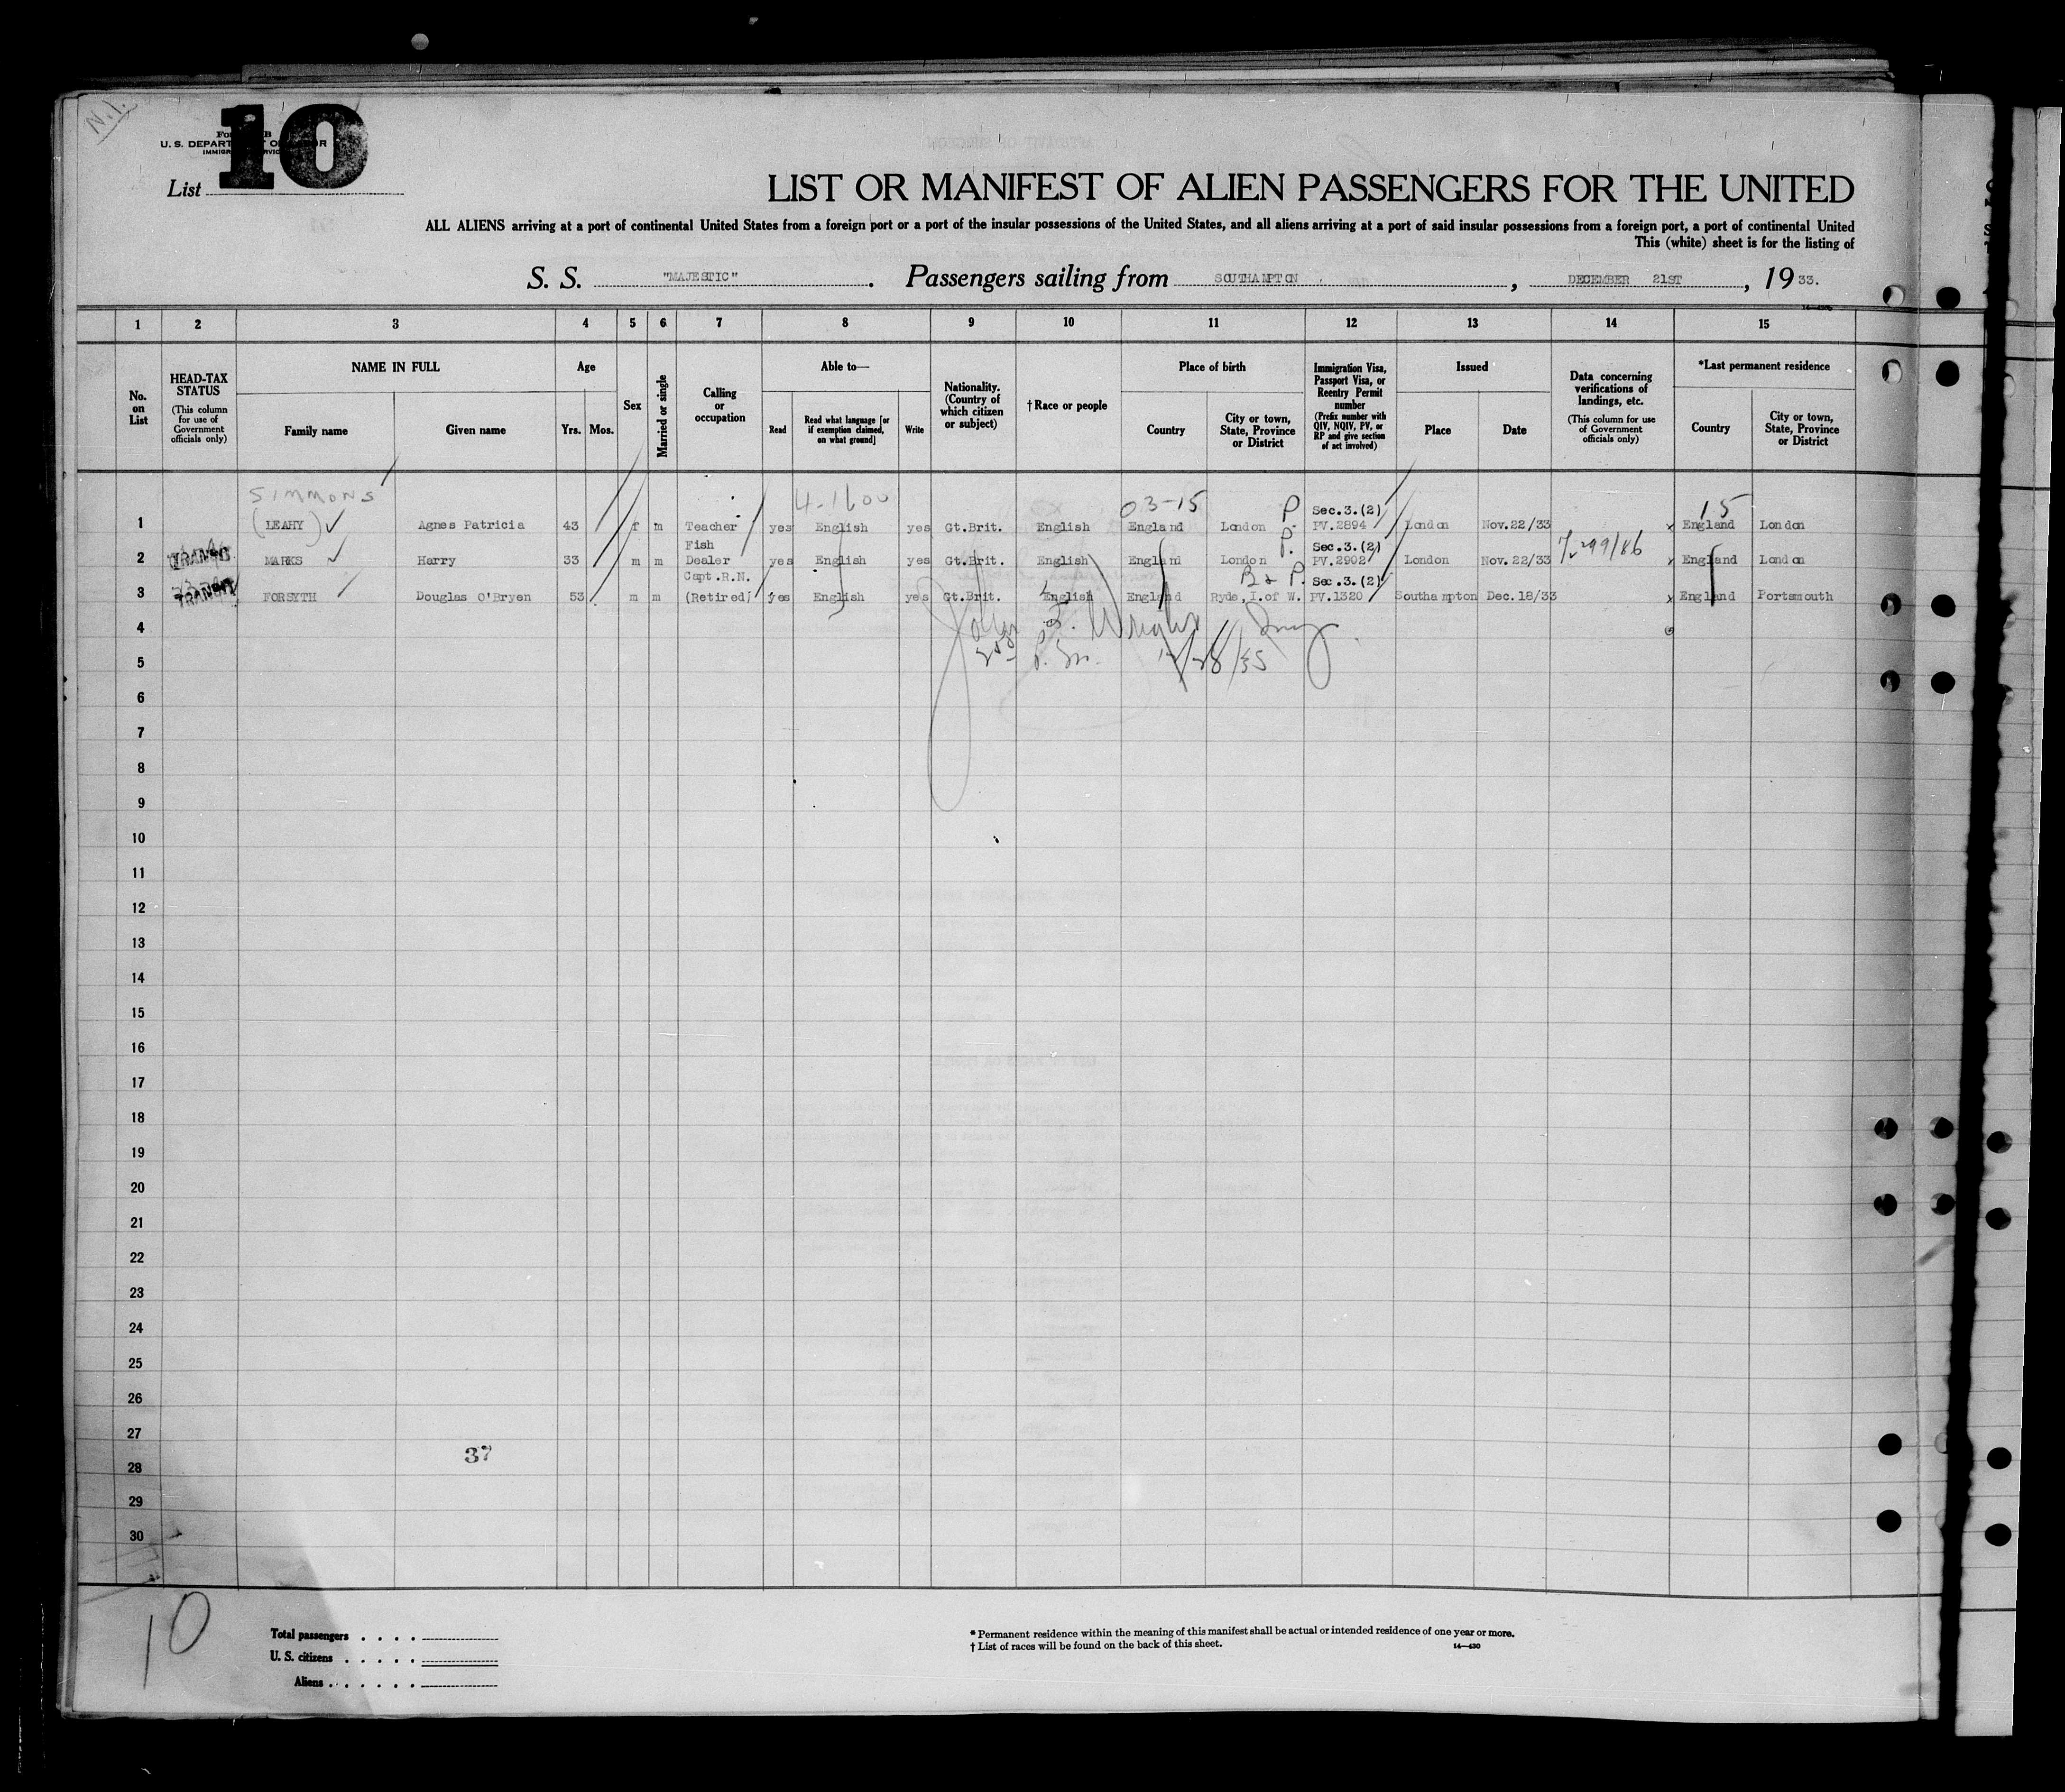 N.I.
10
U. S. DEPARTMENT OF LABOR
List
LIST OR MANIFEST OF ALIEN PASSENGERS FOR THE UNITED
ALL ALIENS arriving at a port of continental United States from a foreign port or a port of the insular possessions of the United States, and all aliens arriving at a port of said insular possessions from a foreign port, a port of continental United
This (white) sheet is for the listing of
S. S. "MAJESTIC". Passengers sailing from SOUTHAMPTON, DECEMBER 21ST, 1933.
1 2 3 4 5 6 7 8 9 10 11 12 13 14 15
No. on List
HEAD-TAX STATUS (This column for use of Government officials only)
NAME IN FULL
Family name
Given name
Age
Yrs. Mos.
Sex
Married or single
Calling or occupation
Able to—
Read
Read what language [or if exemption claimed, on what ground]
Write
Nationality. (Country of which citizen or subject)
†Race or people
Place of birth
Country
City or town, State, Province or District
Immigration Visa, Passport Visa, or Reentry Permit number (Prefix number with QIV, NQIV, PV, or RP and give section of act involved)
Issued
Place
Date
Data concerning verifications of landings, etc. (This column for use of Government officials only)
*Last permanent residence
Country
City or town, State, Province or District
SIMMONS 4-1600 03-15 P Sec.3.(2) 15
1 (LEAHY) Agnes Patricia 43 f m Teacher yes English yes Gt.Brit. English England London PV.2894 London Nov.22/33 x England London
Fish P. Sec.3.(2)
2 TRANSIT MARKS Harry 33 m m Dealer yes English yes Gt.Brit. English England London PV.2902 London Nov.22/33 x England London
Capt.R.N. B & P. Sec.3.(2)
3 TRANSIT FORSYTH Douglas O'Bryen 53 m m (Retired) yes English yes Gt.Brit. English England Ryde, I.of W. PV.1320 Southampton Dec.18/33 x England Portsmouth
4
5
6
7
8
9
10
11
12
13
14
15
16
17
18
19
20
21
22
23
24
25
26
27
37
28
29
30
10
Total passengers . . . .
U. S. citizens . . . . .
Aliens . . . . . .
* Permanent residence within the meaning of this manifest shall be actual or intended residence of one year or more.
† List of races will be found on the back of this sheet. 14—430